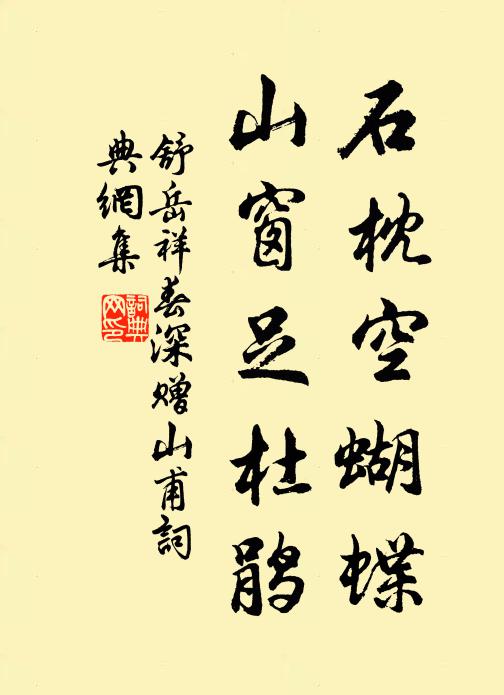 石枕空蝴蝶
山窗足杜鹃
舒岳祥春深赠山甫詞
典網集
詞典网印